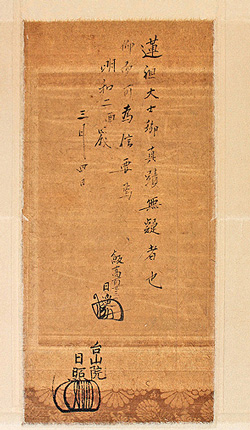 蓮祖大士御真蹟無疑者也
仰而可為信要焉
明和二酉歳
三月十四日
飯高
日
台山院
日照